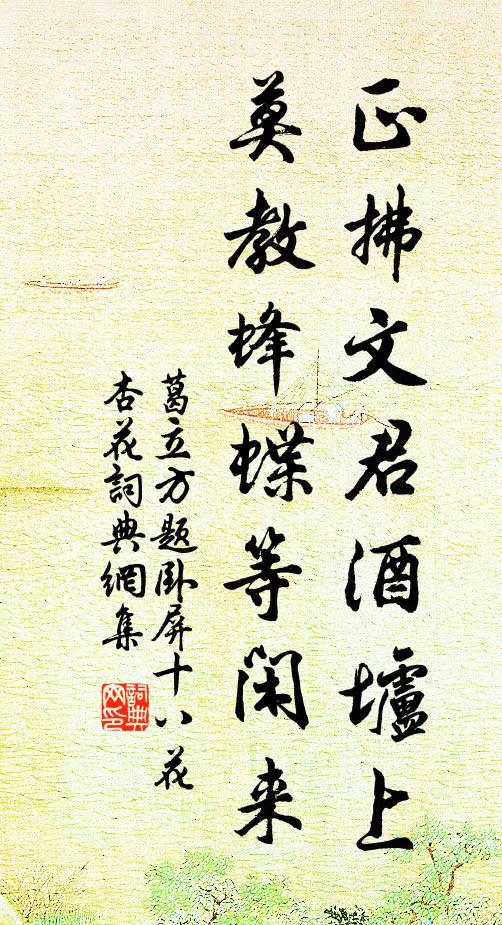 正拂文君酒壚上
莫教蜂蝶等閑来
葛立方題卧屏十八花
杏花詞典網集
詞典网印